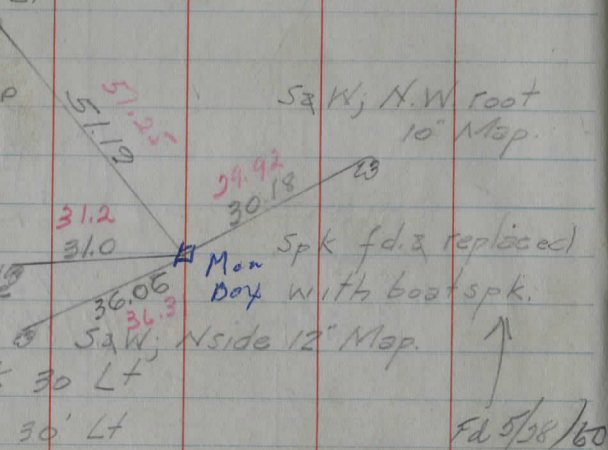 51.25
51.19
S&W; N.W. root
10" Map.
29.92
30.18
31.2
31.0
Mon
Box
Spk fd. & replaced
with boat spk.
36.06
36.3
S&W; N side 12" Map.
30 Lt
30' Lt
Fd 5/28/60